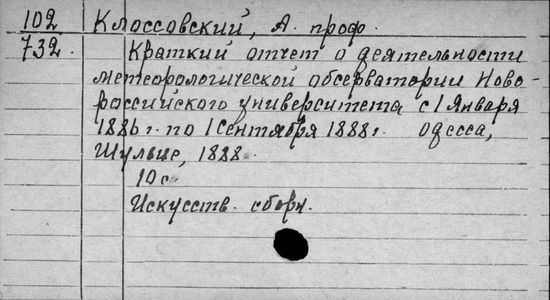 102 Клоссовский, А. проф.
732. Краткий отчет о деятельности
метеорологической обсерватории Ново-
российского университета с 1 Января
1886 г. по 1 Сентября 1888 г. Одесса,
Шульце, 1888.
10 с.
Искусств. сборн.